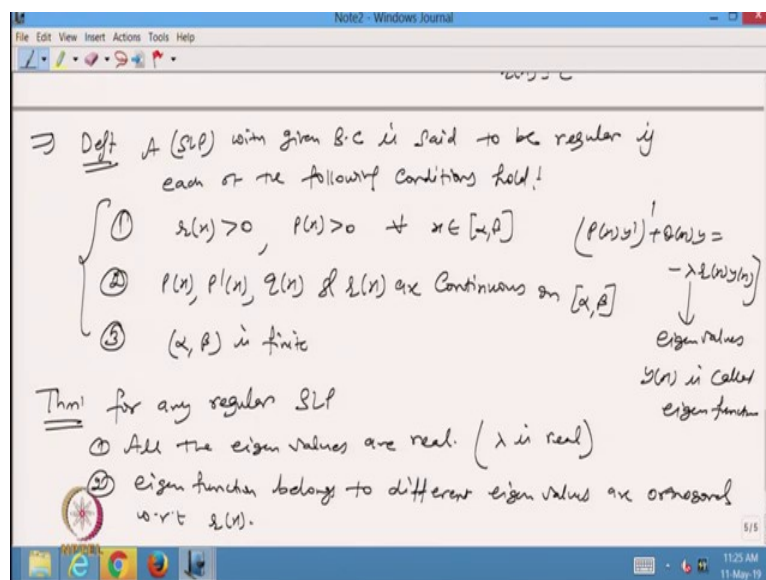 Note2 - Windows Journal
File Edit View Insert Actions Tools Help
⇒ Defⁿ A (SLP) with given B.C is said to be regular if
each of the following Conditions hold!
① r(x) > 0, p(x) > 0 ∀ x ∈ [α, β]
(p(x)y')' + q(x)y =
- λ r(x) y(x)
② p(x), p'(x), q(x) & r(x) are Continuous on [α, β]
↓
③ (α, β) is finite
eigen values
y(x) is called
eigen function
Thm! for any regular SLP
① All the eigen values are real. (λ is real)
② eigen function belongs to different eigen values are orthogonal
w.r.t r(x).
5/5
NPTEL
11:25 AM
11-May-19